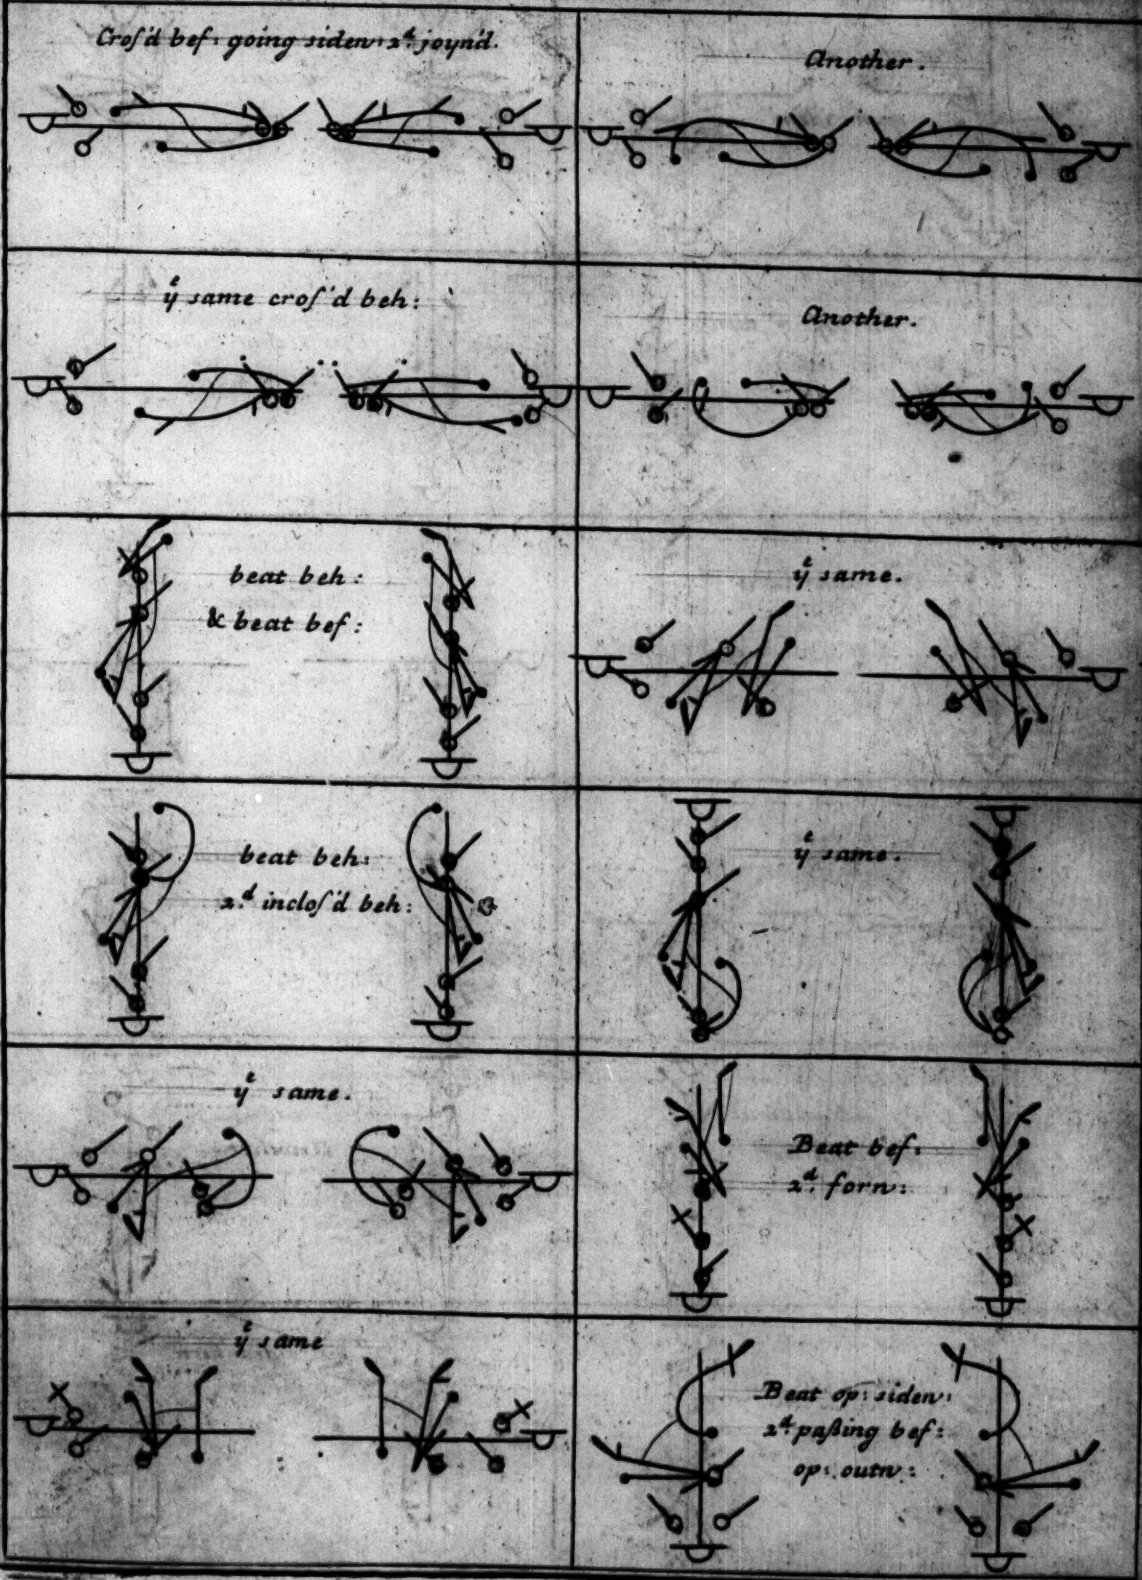 Cross'd bef: going siden: 2.d joyn'd.
Another.
ye same cross'd beh:
Another.
beat beh:
& beat bef:
ye same.
beat beh:
2.d inclos'd beh:
ye same.
ye same.
Beat bef:
2.d forn:
ye same
Beat op: siden:
2.d passing bef:
op: outn: